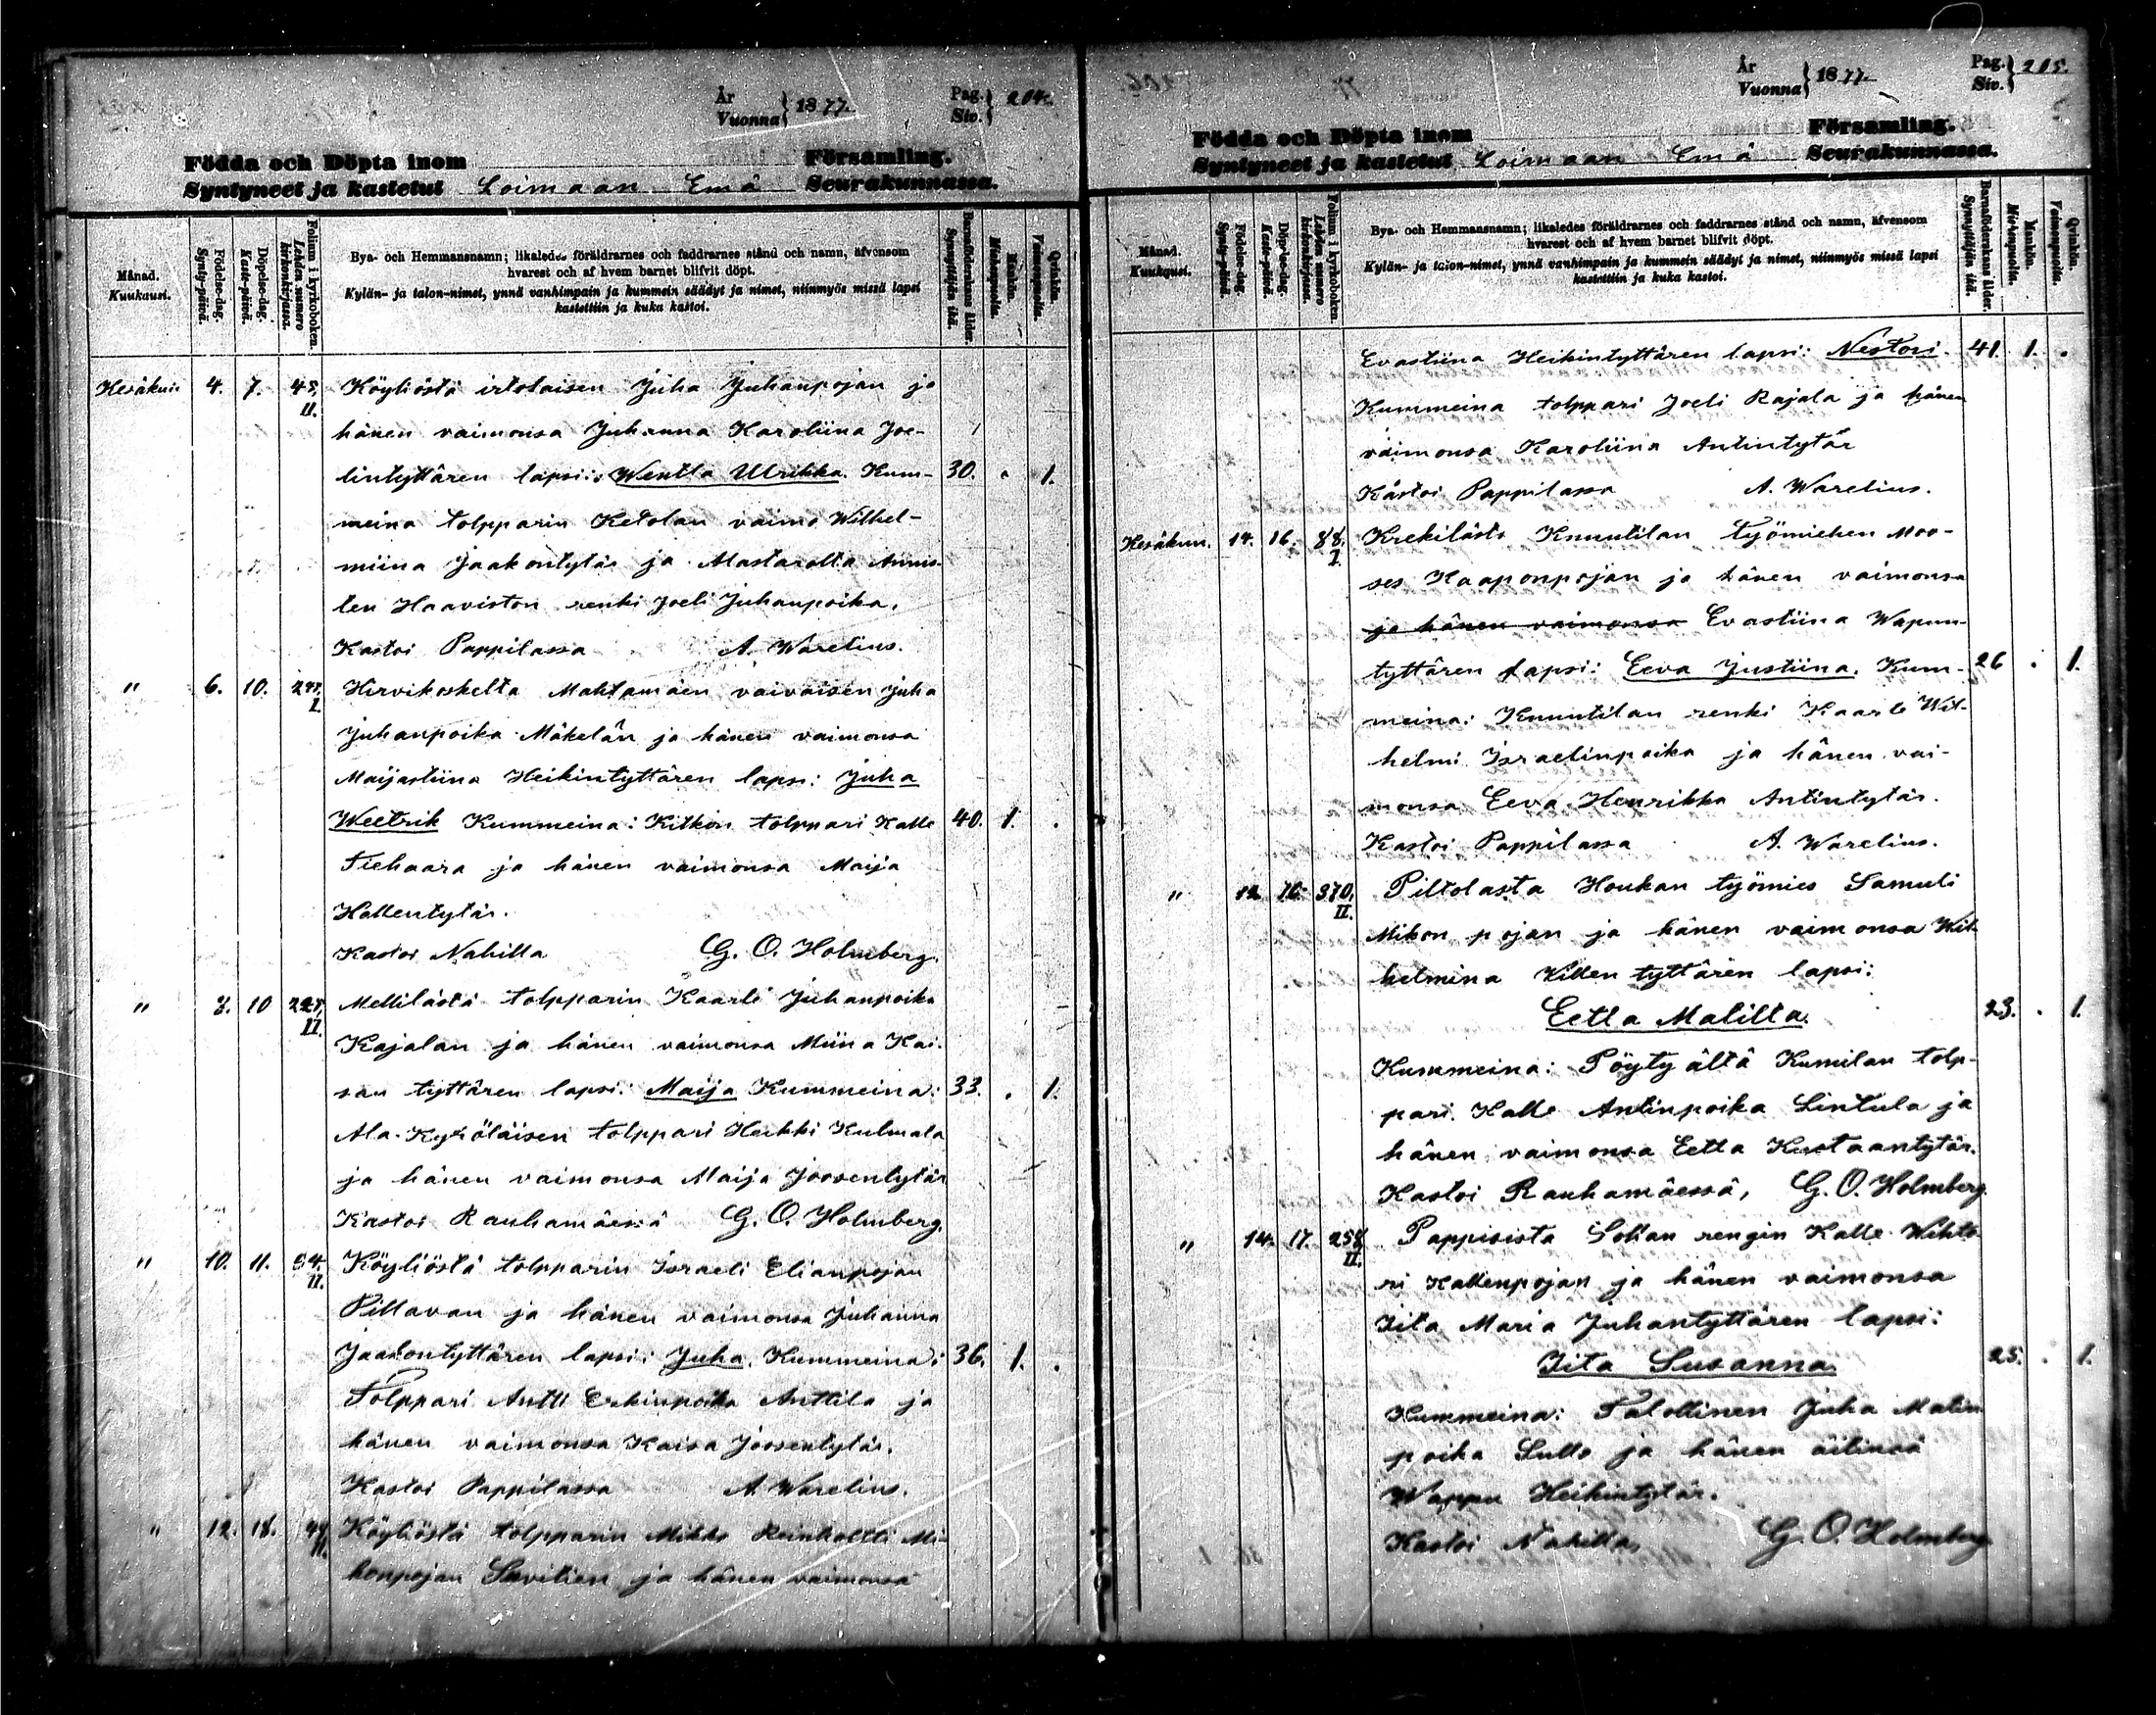 År
Vuonna } 1877.
Pag.
Siv. } 204.
Födda och Döpta inom Församling.
Syntyneet ja kastetut Loimaan Emä Seurakunnassa.
Månad.
Kuukausi.
Födelse-dag.
Synty-päivä.
Döpelse-dag.
Kaste-päivä.
Folium i kyrkoboken.
Lehden numero kirkonkirjassa.
Bya- och Hemmansnamn; likaledes föräldrarnes och faddrarnes stånd och namn, äfvensom
hvarest och af hvem barnet blifvit döpt.
Kylän- ja talon-nimet, ynnä vanhimpain ja kummein säädyt ja nimet, niinmyös missä lapsi
kastettiin ja kuka kastoi.
Barnaföderskans ålder.
Synnyttäjän ikä.
Mankön.
Miehenpuolta.
Qvinkön.
Vaimonpuolta.
Kesäkuu 4. 7. 45. Köyliöstä irtolaisen Juha Juhanpojan ja
II.
hänen vaimonsa Juhanna Karoliina Joe-
lintyttären lapsi: Wentla Ulrikka. Kum- 30. . 1.
meina tolpparin Ketolan vaimo Wilhel-
miina Jaakontytär ja Mastarolta Annis-
ten Haaviston renki Joeli Juhanpoika.
Kastoi Pappilassa A. Warelius.
" 6. 10. Hirvikoskelta Mahtamäen vaivaisen Juha
I.
Juhanpoika Mäkelän ja hänen vaimonsa
Maijastiina Heikintyttären lapsi: Juha
Weetrik Kummeina: Kitkon tolppari Kalle 40. 1. .
Tiehaara ja hänen vaimonsa Maija
Kallentytär.
Kastoi Nahilla G. O. Holmberg.
" 8. 10 Mellilästä tolpparin Kaarle Juhanpoika
II.
Kajalan ja hänen vaimonsa Miina Kai-
san tyttären lapsi: Maija Kummeina: 33. . 1.
Ala-Kyröläisen tolppari Heikki Kulmala
ja hänen vaimonsa Maija Joosentytär
Kastoi Rauhamäessä G. O. Holmberg.
" 10. 11. Köyliöstä tolpparin Israeli Elianpojan
II.
Pillavan ja hänen vaimonsa Juhanna
Jaakontyttären lapsi: Juha. Kummeina: 36. 1. .
Tolppari Antti Erkinpoika Anttila ja
hänen vaimonsa Kaisa Joosentytär.
Kastoi Pappilassa A. Warelius.
" 12. Köyliöstä tolpparin Mikko Reinholtti Mi-
II.
konpojan Savitien ja hänen vaimonsa
År
Vuonna } 1877.
Pag.
Siv. } 205.
Födda och Döpta inom Församling.
Syntyneet ja kastetut Loimaan Emä Seurakunnassa.
Månad.
Kuukausi.
Födelse-dag.
Synty-päivä.
Döpelse-dag.
Kaste-päivä.
Folium i kyrkoboken.
Lehden numero kirkonkirjassa.
Bya- och Hemmansnamn; likaledes föräldrarnes och faddrarnes stånd och namn, äfvensom
hvarest och af hvem barnet blifvit döpt.
Kylän- ja talon-nimet, ynnä vanhimpain ja kummein säädyt ja nimet, niinmyös missä lapsi
kastettiin ja kuka kastoi.
Barnaföderskans ålder.
Synnyttäjän ikä.
Mankön.
Miehenpuolta.
Qvinkön.
Vaimonpuolta.
Evastiina Heikintyttären lapsi: Nestori. 41. 1. .
Kummeina tolppari Joeli Rajala ja hänen
vaimonsa Karoliina Antintytär
Kastoi Pappilassa A. Warelius.
Kesäkuu. 14. 16. 88. Krekilästä Knuutilan työmiehen Moo-
I.
ses Kaaponpojan ja hänen vaimonsa
ja hänen vaimonsa Evastiina Wapun-
tyttären lapsi: Eeva Justiina. Kum- 26 . 1.
meina: Knuutilan renki Kaarle Wil-
helmi Israelinpoika ja hänen vai-
monsa Eeva Henrikka Antintytär.
Kastoi Pappilassa A. Warelius.
" 12 16 370. Piltolasta Houkan työmies Samuli
II.
Mikon pojan ja hänen vaimonsa Wil-
helmina Killen tyttären lapsi:
Eetla Malilta. 23. . 1.
Kummeina: Pöytyältä Kumilan tolp-
pari Kalle Antinpoika Lintula ja
hänen vaimonsa Eetla Kustaantytär.
Kastoi Rauhamäessä, G. O. Holmberg.
" 14. 17. 258. Pappisista Sokan rengin Kalle Wihto
II.
ri Kallenpojan ja hänen vaimonsa
Iita Maria Juhantyttären lapsi:
Iita Susanna. 25. . 1.
Kummeina: Talollinen Juha Matin
poika Sullo ja hänen äitinsä
Wappu Heikintytär.
Kastoi Nahilla, G. O. Holmberg